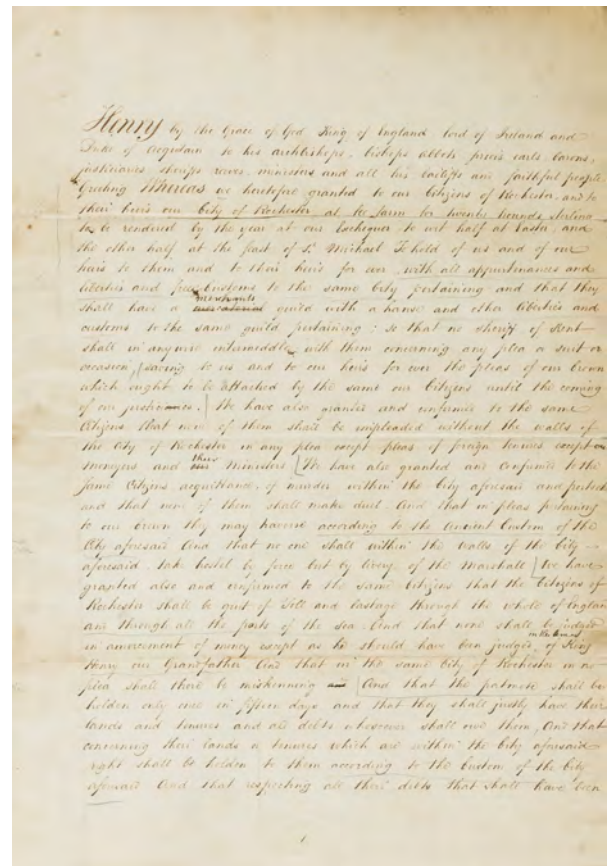 Henry by the Grace of God King of England lord of Ireland and
Duke of Acquitain to his archbishops, bishops abbots priors earls, barons,
justiciaries, sheriffs reeves, ministers and all his bailiffs and faithful people
Greeting Whereas we heretofore granted to our Citizens of Rochester, and to
their heirs our City of Rochester at fee farm for twenty pounds sterling
to be rendered by the year at our Exchequer to wit half at Easter, and
the other half at the feast of St Michael To hold of us and of our
heirs to them and to their heirs for ever, with all appurtenances and
liberties and free Customs to the same City pertaining and that they
shall have a merchants guild with a hanse and other liberties and
customs to the same guild pertaining; so that no sheriff of Kent
shall in anywise intermeddle with them concerning any plea or suit or
occasion, saving to us and to our heirs for ever the pleas of our Crown
which ought to be attached by the same our Citizens until the coming
of our justices. We have also granted and confirmed to the same
Citizens that none of them shall be impleaded without the walls of
the City of Rochester in any plea except pleas of foreign tenures except
moneyers and their Ministers We have also granted and Confirmed to the
same Citizens acquittance, of murder within the City aforesaid and
and that none of them shall make duel. And that in pleas pertaining
to our Crown they may according to the Ancient Custom of the
City aforesaid And that no one shall within the walls of the City
aforesaid, take hostel by force but by livery of the Marshall We have
granted also and confirmed to the same Citizens that the Citizens of
Rochester shall be quit of Toll and Lastage through the whole of England
and through all the ports of the sea. And that none shall be judged
in amercement of money except as he should have been judged in the time of King
Henry our Grandfather And that in the same City of Rochester in no
plea shall there be miskenning And that the shall be
holden only once in fifteen days and that they shall justly have their
lands and tenures and all debts whosoever shall owe them, And that
concerning their lands or tenures which are within the City aforesaid
right shall be holden to them according to the Custom of the City
aforesaid And that respecting all their debts that shall have been
1